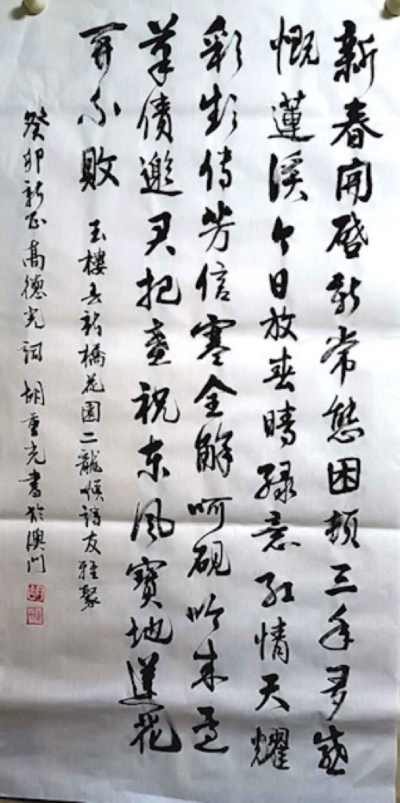 新春開啓新常態困頓三年多感
慨蓮溪今日放春晴綠意紅情天耀
彩傳芳信寒全解呵硯吟成還
筆債邀君把盞祝東風寶地蓮花
開不敗 玉樓春橋花園二龍喉諸友雅聚
癸卯新正高德光詞胡重光書於澳門